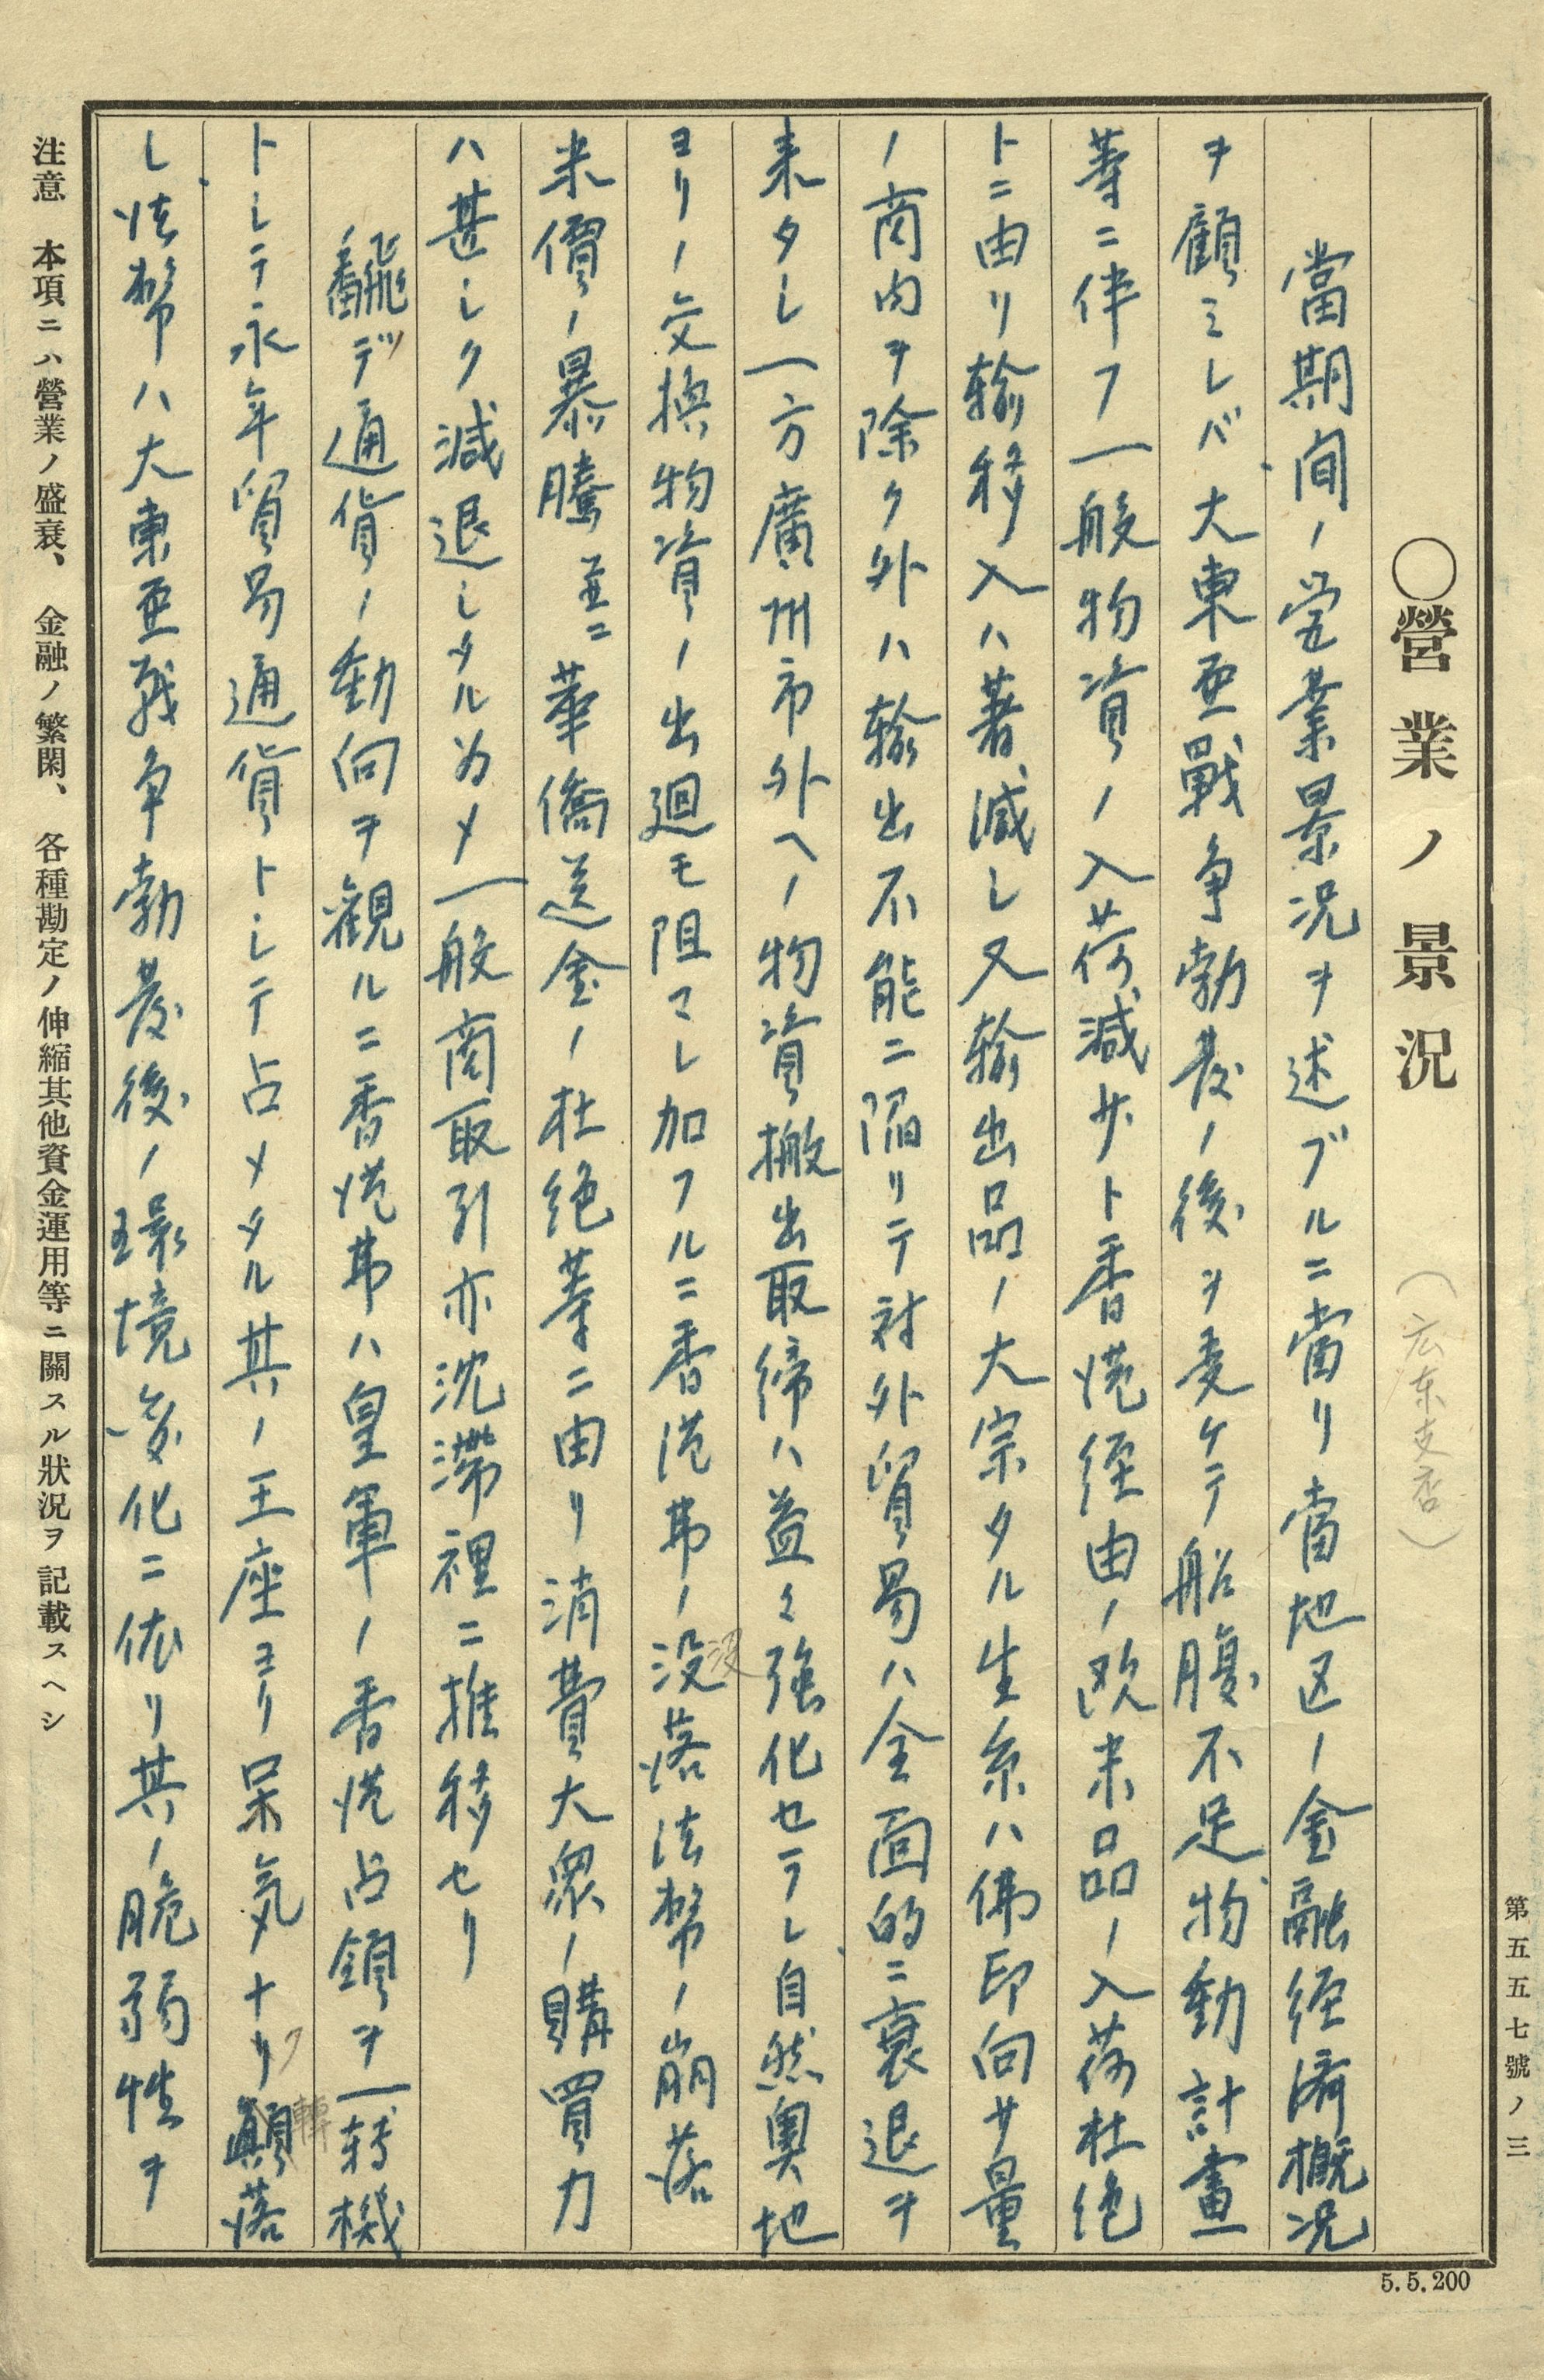 第五五七號ノ三
○營業ノ景況
（広东支店）
當期間ノ営業景況ヲ述ブルニ當リ當地区ノ金融経済概況
ヲ顧ミレバ大東亜戰争勃発ノ後ヲ麦ケテ船腹不足物動計畫
等ニ伴フ一般物資ノ入荷減少ト香港経由ノ欧米品ノ入荷杜絶
トニ由リ輸移入ハ著減シ又輸出品ノ大宗タル生糸ハ佛印向少量
ノ商内ヲ除ク外ハ輸出不能ニ陥リテ対外貿易ハ全面的ニ衰退ヲ
来タシ一方廣州市外ヘノ物資搬出取締ハ益々強化セラレ自然奥地
ヨリノ交換物資ノ出廻モ阻マレ加フルニ香港弗ノ没落法幣ノ崩落
没
米價ノ暴騰並ニ華僑送金ノ杜絶等ニ由リ消費大衆ノ購買力
ハ甚シク減退シタル為メ一般商取引亦沈滞裡ニ推移セリ
飜ツデ通貨ノ動向ヲ観ルニ香港弗ハ皇軍ノ香港占領ヲ一转機
トシテ永年貿易通貨トシテ占メタル其ノ王座ヨリ呆気ナリク顚落
轉
シ法幣ハ大東亜戦争勃発後ノ環境変化ニ依リ其ノ脆弱性ヲ
注意　本項ニハ營業ノ盛衰、金融ノ繁閑、各種勘定ノ伸縮其他資金運用等ニ關スル狀況ヲ記載スヘシ
5.5.200